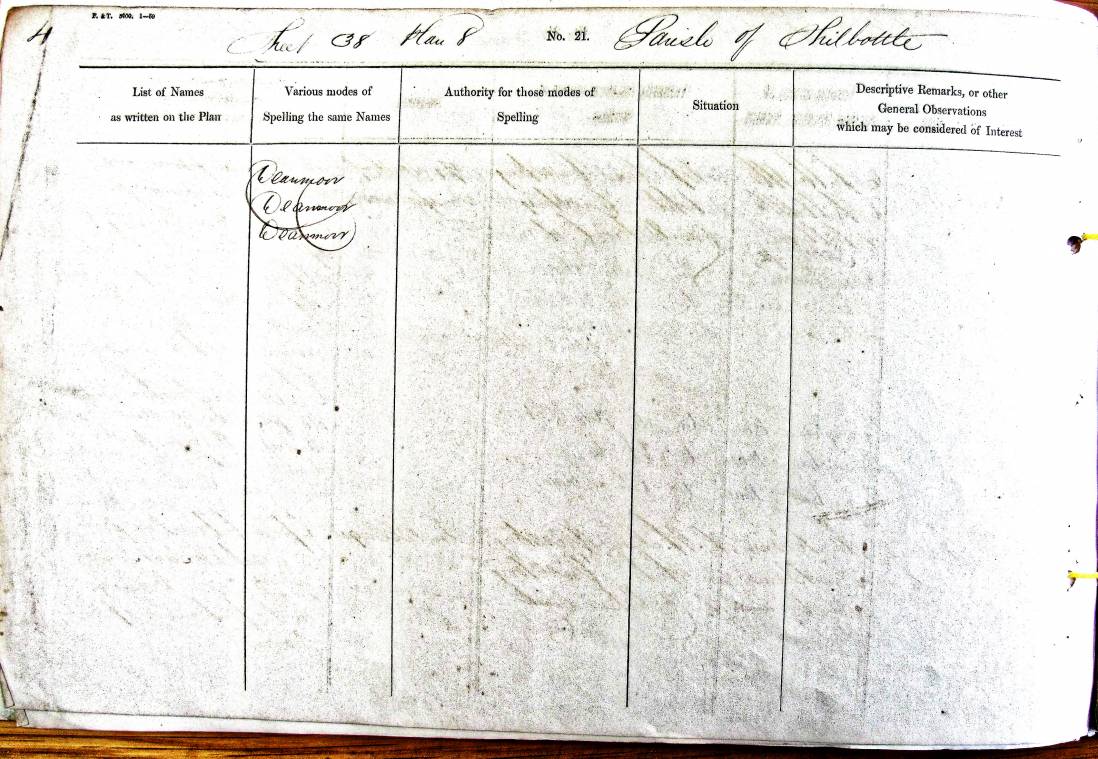 4
F. & T. 5600. 1—59
Sheet 38 Plan 8 No. 21. Parish of Shilbottle
List of Names
as written on the Plan
Various modes of
Spelling the same Names
Authority for those modes of
Spelling
Situation
Descriptive Remarks, or other
General Observations
which may be considered of Interest
Deanmoor
Deanmoor
Deanmoor